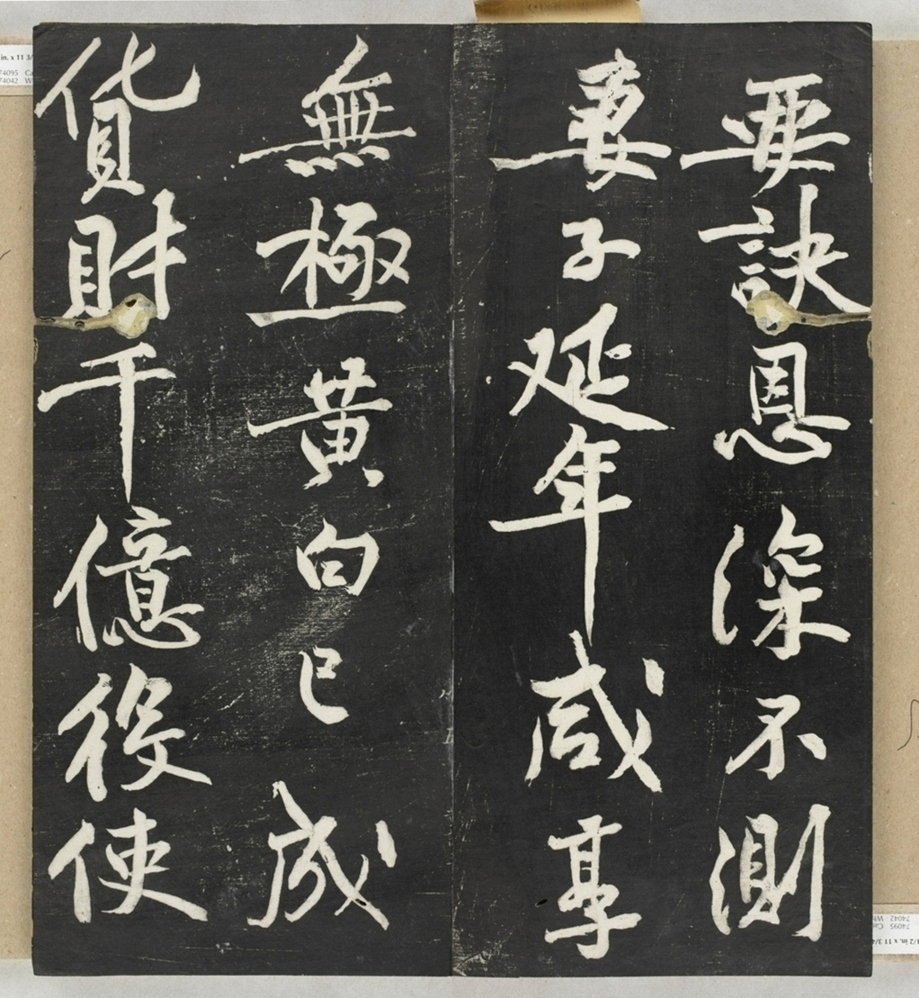 要訣恩深不測
妻子延年咸享
無極黄白已成
貨財千億役使